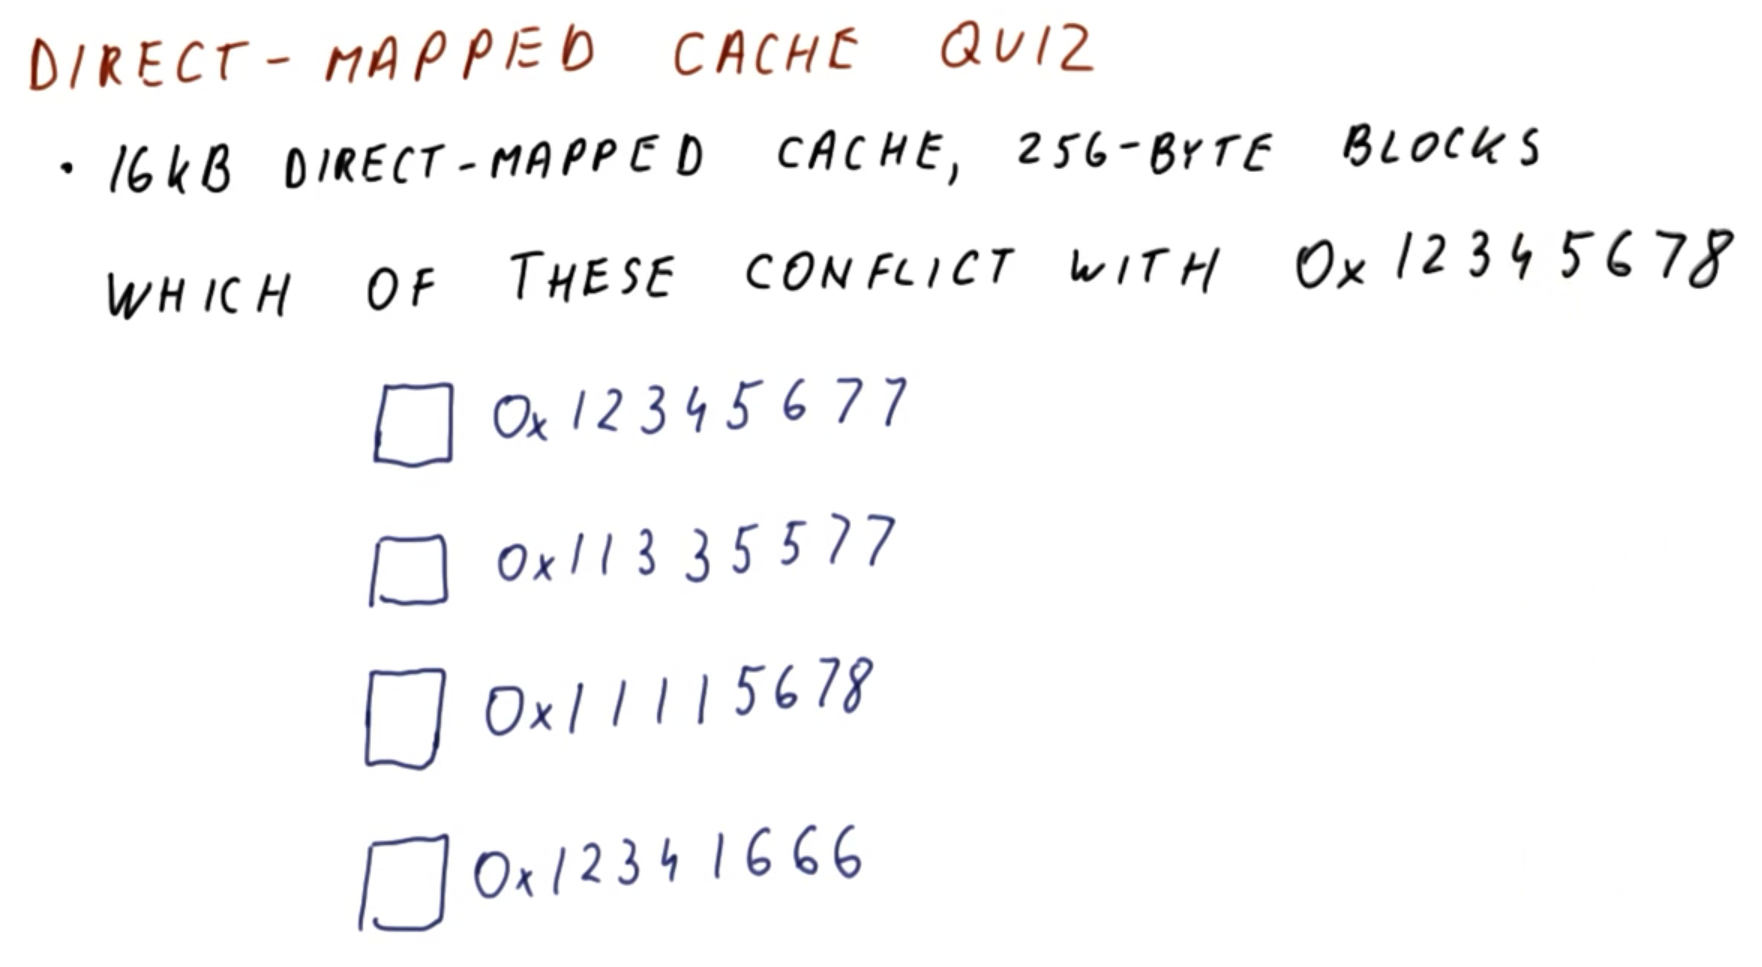 DIRECT-MAPPED CACHE QUIZ
• 16kB DIRECT-MAPPED CACHE, 256-BYTE BLOCKS
WHICH OF THESE CONFLICT WITH 0x12345678
0x12345677
0x11335577
0x11115678
0x12341666